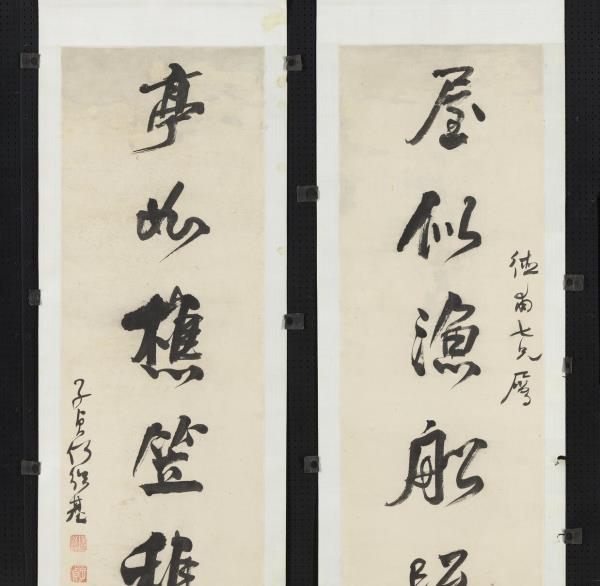 德甫七兄属
屋似漁船
亭如樵笠
子貞何紹基